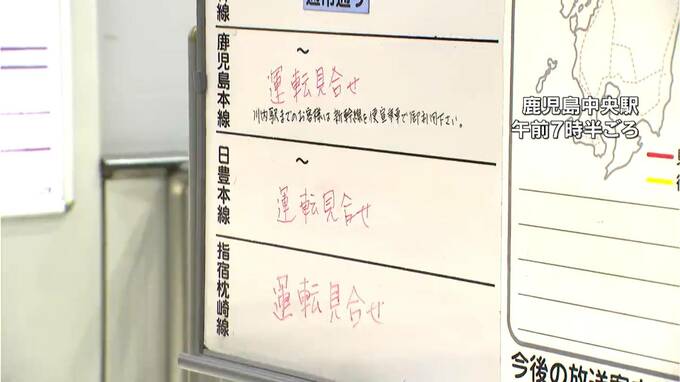 線
通常通り
鹿児島本線
～
運転見合せ
川内駅までのお客様は新幹線を便宜乗車で御利用下さい。
日豊本線
～
運転見合せ
指宿枕崎線
運転見合せ
鹿児島中央駅
午前7時半ごろ
今後の放送案内